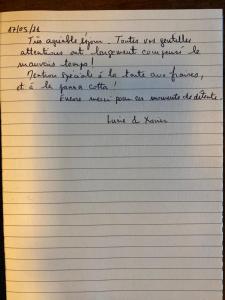 17/05/21
Très agréable séjour. Toutes vos gentilles
attentions ont largement compensé le
mauvais temps !
Mention spéciale à la tarte aux fraises,
et à la panna cotta !
Encore merci pour ces moments de détente.
Lucie & Xavier